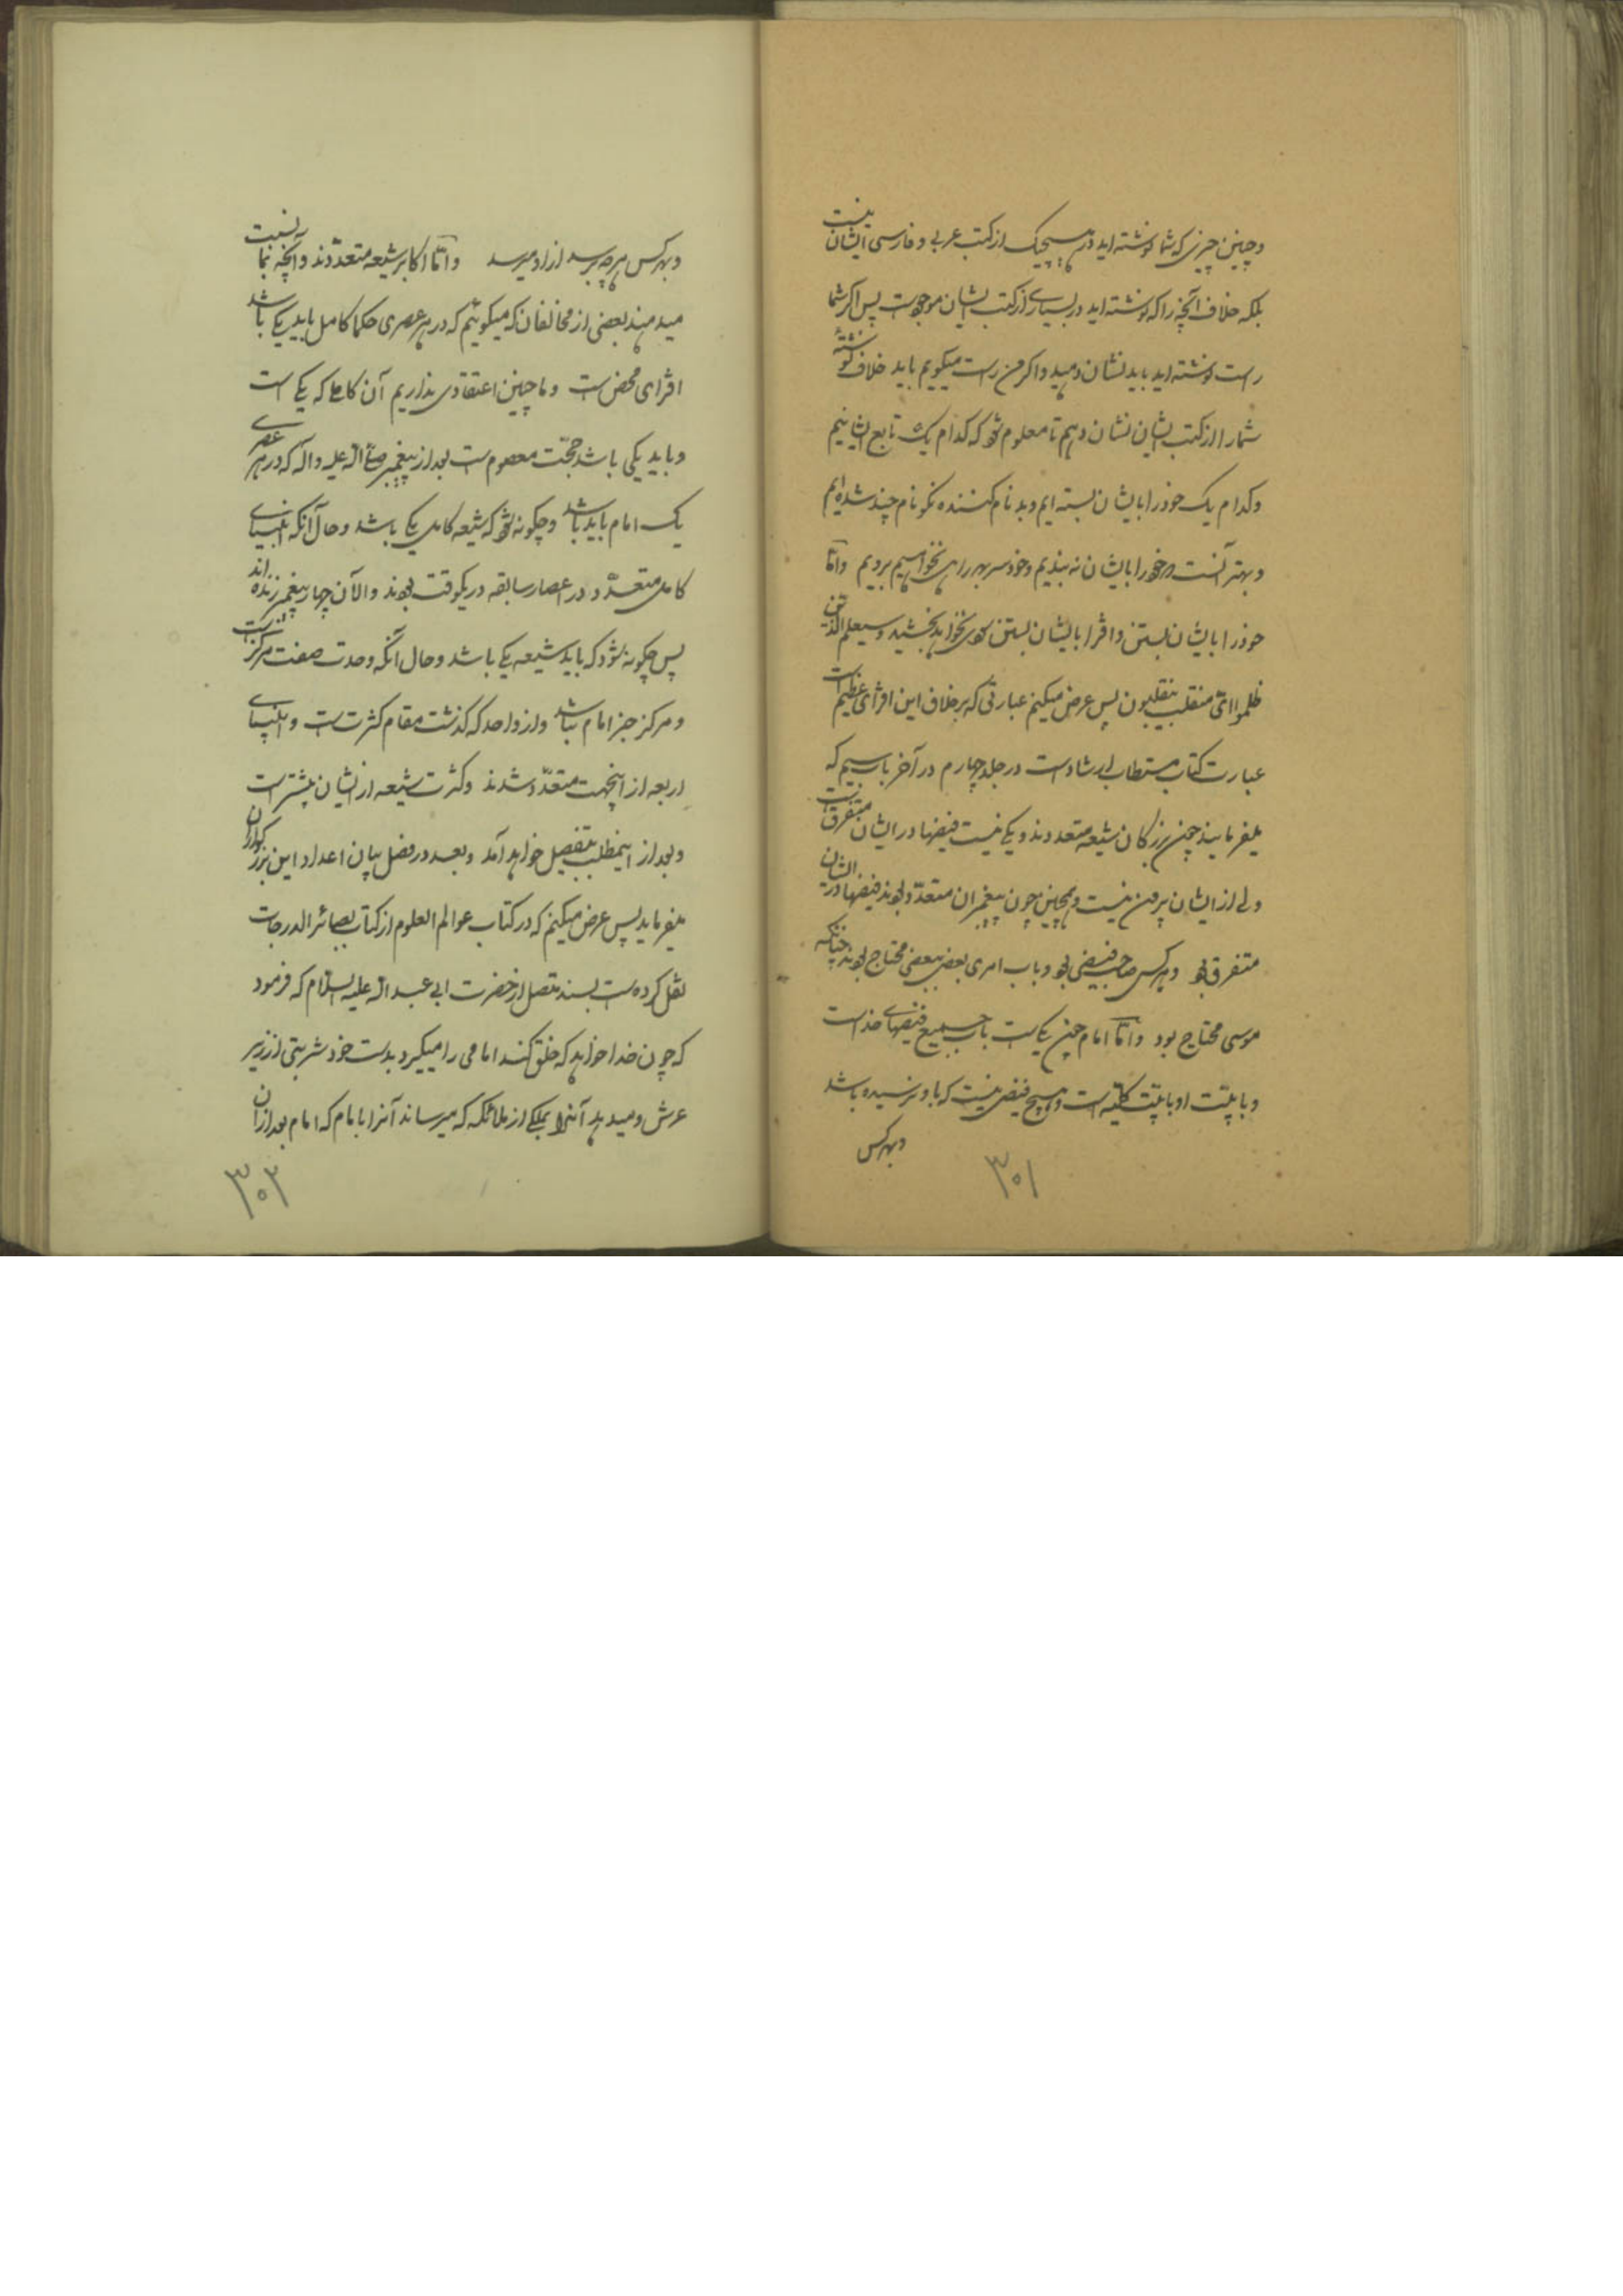 و چنین چیزی که شما نوشته‌اید در هیچیک از کتب عربی و فارسی ایشان نیست
بلکه خلاف آنچه را که نوشته‌اید در بسیاری از کتب ایشان موجود است پس اگر شما
راست نوشته‌اید باید نشان دهید و اگر من راست میگویم باید خلاف نوشتهٔ
شما را از کتب ایشان نشان دهم تا معلوم شود که کدام یک تابع ایشانیم
و کدام یک خود را بایشان بسته‌ایم و بدنام کننده نکونام چند شده‌ایم
و بهتر آنست که خود را بایشان نه‌بندیم و خودسر بهر راهی بخواهیم برویم و امّا
خود را بایشان بستن و افترا بایشان بستن سودی نخواهد بخشید و سیعلم الذین
ظلموا ای منقلب ینقلبون پس عرض میکنم عبارتی که برخلاف این افترای عظیم است
عبارت کتاب مستطاب ارشاد است در جلد چهارم در آخر باب سیم که
میفرمایند چون بزرگان شیعه متعددند و یکی نیست فیضها در ایشان متفرق است
ولی از ایشان بیرون نیست و همچنین چون پیغمبران متعدّد بودند فیضها در ایشان
متفرق بود و هر کس صاحب فیضی بود و باب امری بعضی ببعضی محتاج بودند چنانکه
موسی محتاج بود و امّا امام چون یکی است باب جمیع فیضهای خداست
و بابیّت او بابیّت کلّیه است و هیچ فیضی نیست که باو نرسیده باشد
و بهر کس
۳۰۱
و بهر کس هر چه برسد از او میرسد و امّا اکابر شیعه متعدّدند و آنچه بما نسبت
میدهند بعضی از مخالفان که میگوئیم که در هر عصری حکما کامل باید یکی باشد
افترای محض است و ما چنین اعتقادی نداریم آن کاملی که یکی است
و باید یکی باشد حجّت معصوم است بعد از پیغمبر صلّی الله علیه و آله که در هر عصری
یک امام باید باشد و چگونه شود که شیعه کامل یکی باشد و حال آنکه انبیای
کامل متعدّد در اعصار سابقه در یکوقت بودند و الآن چهار پیغمبر زنده‌اند
پس چگونه شود که باید شیعه یکی باشد و حال آنکه وحدت صفت مرکز است
و مرکز جز امام نباشد و از واحد که گذشت مقام کثرت است و انبیای
اربعه از اینجهت متعدّد شدند و کثرت شیعه از ایشان بیشتر است
و بعد از اینمطلب بتفصیل خواهد آمد و بعد در فصل بیان اعداد این بزرگواران
میفرماید پس عرض میکنم که در کتاب عوالم العلوم از کتاب بصائر الدرجات
نقل کرده است بسند متصل از حضرت ابی عبد الله علیه السلام که فرمود
که چون خدا خواهد که خلق کند امامی را میگیرد بدست خود شربتی از زیر
عرش و میدهد آنرا بملکی از ملائکه که میرساند آنرا بامام که امام بعد از آن
۳۰۲